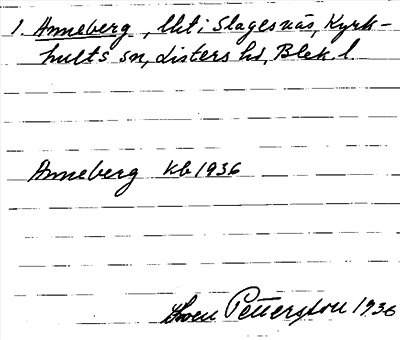 1. Anneberg, lht i Slagesnäs, Kyrk-
hults sn, Listers hd, Blek. l.
Anneberg Kb 1936
Sven Pettersson 1936